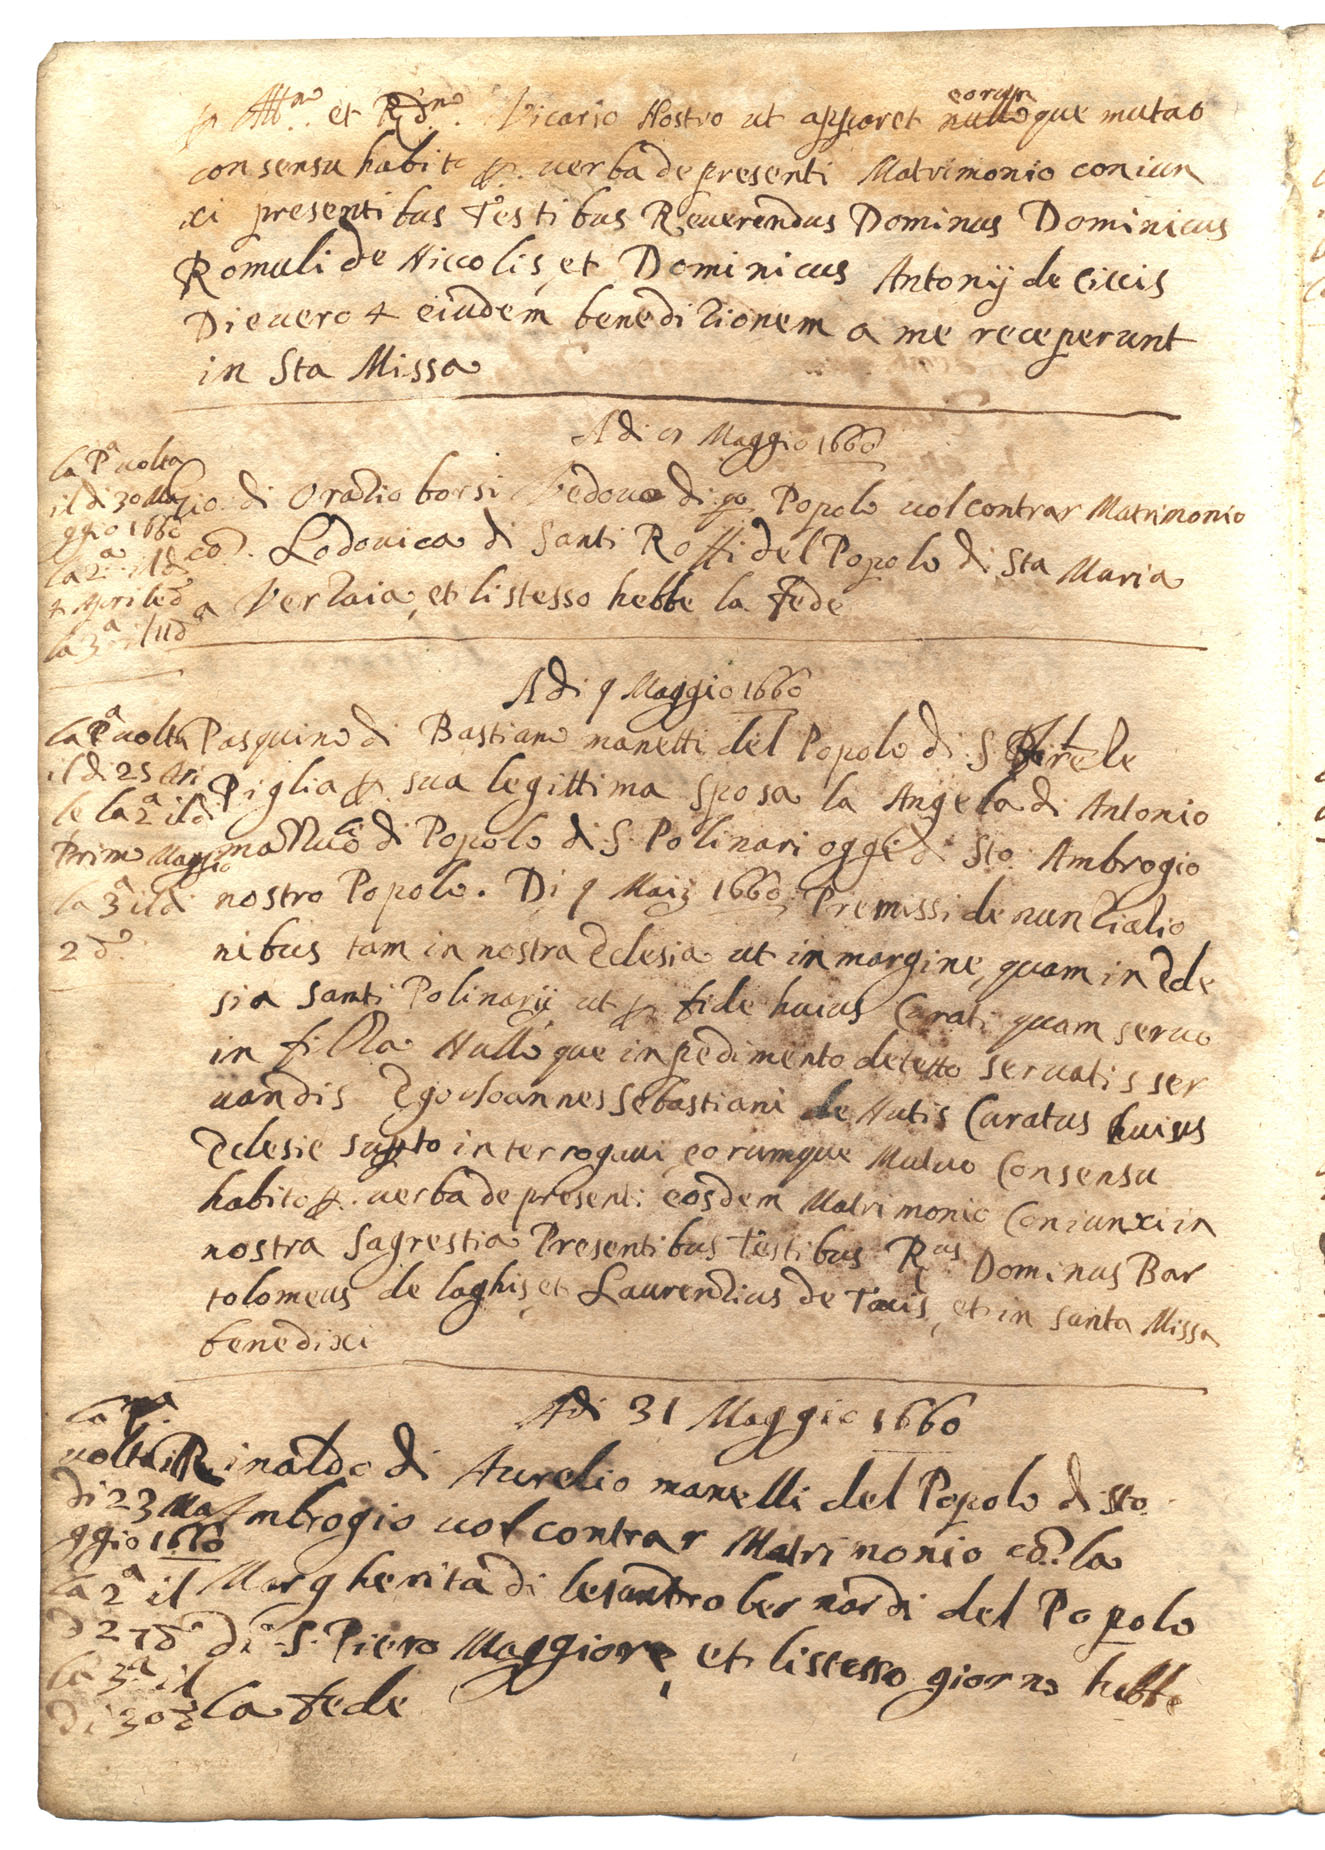 et R.do Vicario Nostro ut apparet eorumque mutuo
consensu habito p. verba de presenti Matrimonio coniun
xi presentibus Testibus Reuerendus Dominus Dominicus
Romuli de Niccolis, et Dominicus Antonij de Ciccis
Die uero 4 eiusdem benedizionem a me receperunt
in Sta Missa
Adi Maggio 1660
la Pa uolta
il di 30 Ma
ggio 1660
la 2a il di
4 Aprile d
la 3a il 11 d
Gio. di Orazio borsi Vedouo di qo Popolo uol contrar Matrimonio
co. Lodouica di Santi Rossi del Popolo di Sta Maria
a Verzaia, et listesso hebbe la Fede
Adi 9 Maggio 1660
la Pa uolta
il di 25 Apri
le la 2a il di
Primo Maggio
la 3a il di
2 do
Pasquino di Bastiano manetti del Popolo di S.
Piglia p. sua legittima Sposa la Angela di Antonio
di Popolo di S. Polinari oggi di Sto Ambrogio
nostro Popolo. Di 9 Maij 1660, Premissi denunziatio
nibus tam in nostra Eclesia ut in margine, quam in Ecle
sia Santi Polinarij ut p fide huius Curati quam seruo
in filza Nulloque inpedimento detetto seruatis ser
uandis Ego Ioannes Sebastiani de Nutis Curatus huius
Eclesie supto interrogaui eorumque Mutuo Consensu
habito p. uerba de presenti eosdem Matrimonio Coniunxi in
nostra Sagrestia Presentibus Testibus R.us Dominus Bar
tolomeus de laghis, et Laurenzius de Tauis, et in santa Missa
benedixi
Adi 31 Maggio 1660
la pa
uolta il
di 23 Ma
ggio 1660
la 2a il
di 27 do
la 3a il
di 30 d
Rinaldo di Aurelio manelli del Popolo di Sto
Ambrogio uol contrar Matrimonio co. la
Margherita di lesantro bernardi del Popolo
di S. Piero Maggiore, et listesso giorno hebbe
la Fede